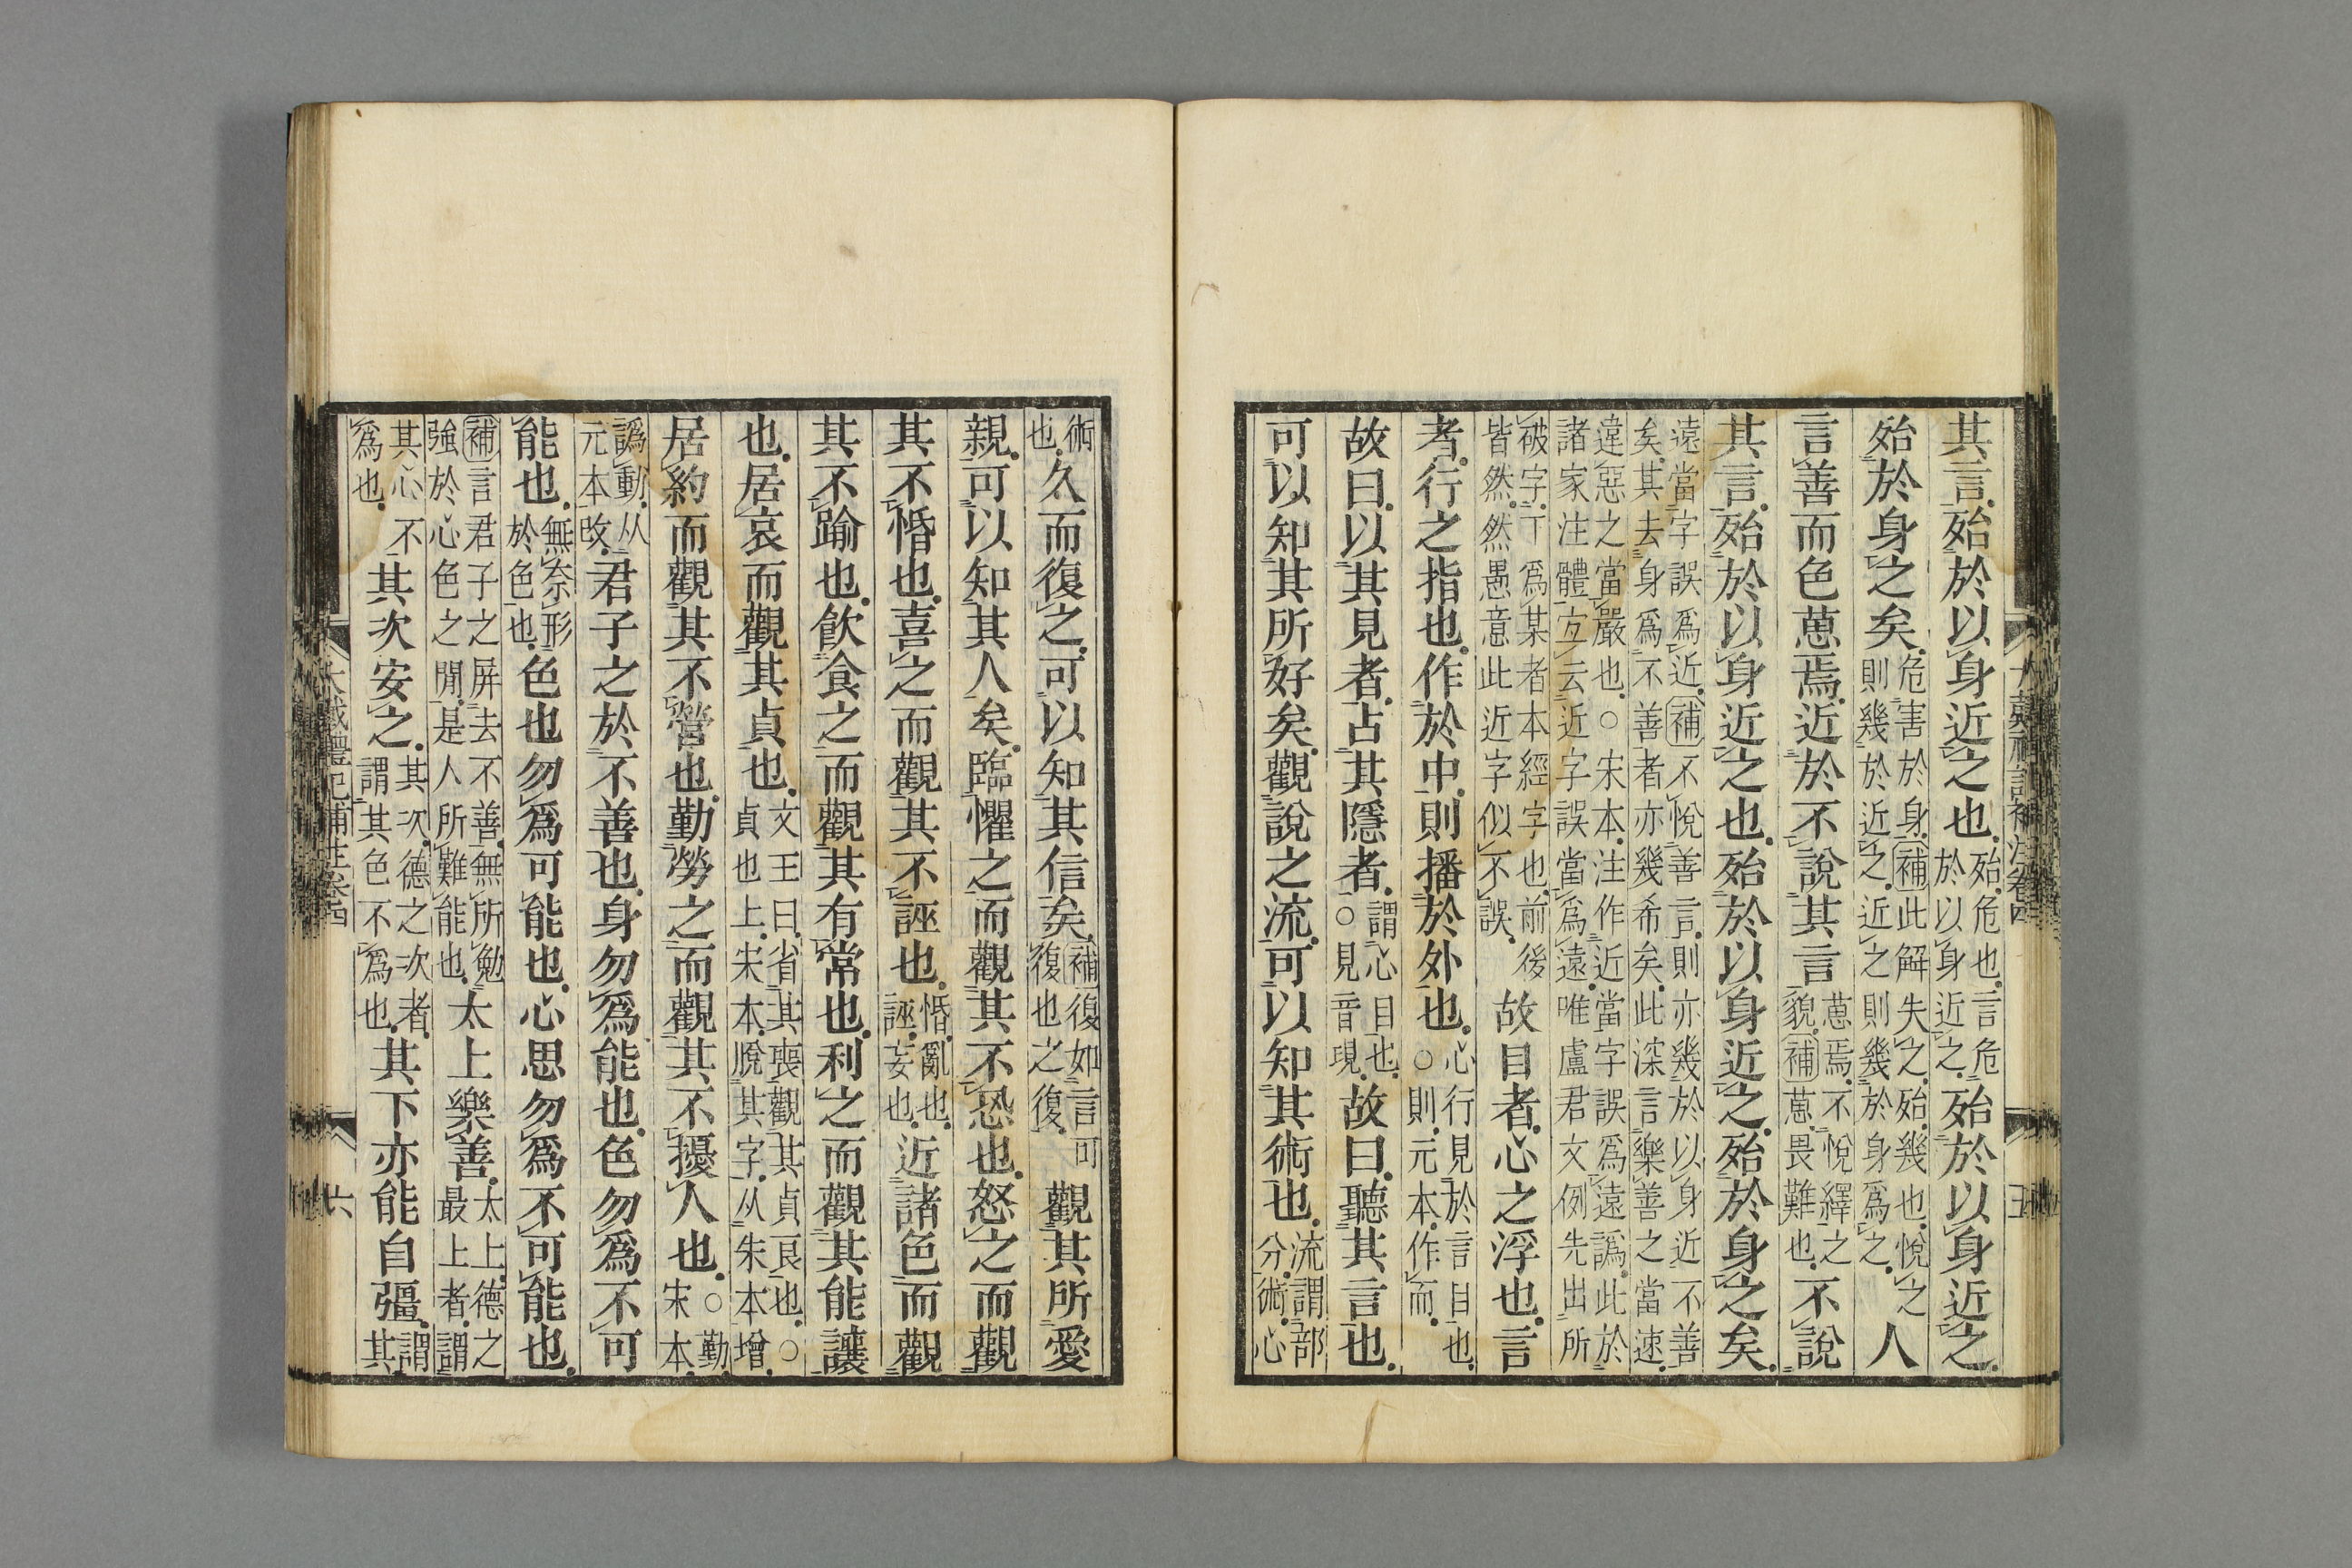 其言殆於以身近之也殆危也言危於以身近之殆於以身近之
殆於身之矣危害於身補此解失之殆幾也悅之則幾於近之近之則幾於身爲之人
言善而色葸焉近於不說其言葸焉不悅繹之貌補葸畏難也不說
其言殆於以身近之也殆於以身近之殆於身之矣
遠當字誤爲近補不悅善言則亦幾於以身近不善矣其去身爲不善者亦幾希矣此深言樂善之當速
違惡之當嚴也○宋本注作近當字誤爲遠譌此於諸家注體宐云近字誤當爲遠唯盧君文例先出所
被字丅爲某者本經字也前後皆然然愚意此近字似不誤故目者心之浮也言
者行之指也作於中則播於外也心行見於言目也○則元本作而
故曰以其見者占其隱者謂心目也○見音現故曰聽其言也
可以知其所好矣觀說之流可以知其術也流謂部分術心
大戴禮記補注卷四
五
術也久而復之可以知其信矣補復如言可復也之復觀其所愛
親可以知其人矣臨懼之而觀其不恐也怒之而觀
其不惛也喜之而觀其不誣也惛亂也誣妄也近諸色而觀
其不踰也飲食之而觀其有常也利之而觀其能讓
也居哀而觀其貞也文王曰省其喪觀其貞良也○貞也上宋本脫其字从朱本增
居約而觀其不營也勤勞之而觀其不擾人也○勤宋本
譌動从元本改君子之於不善也身勿爲能也色勿爲不可
能也無奈形於色也色也勿爲可能也心思勿爲不可能也
補言君子之屏去不善無所勉強於心色之閒是人所難能也太上樂善太上德之最上者謂
其心不爲也其次安之其次德之次者謂其色不爲也其下亦能自彊謂其
大戴禮記補注卷四
六